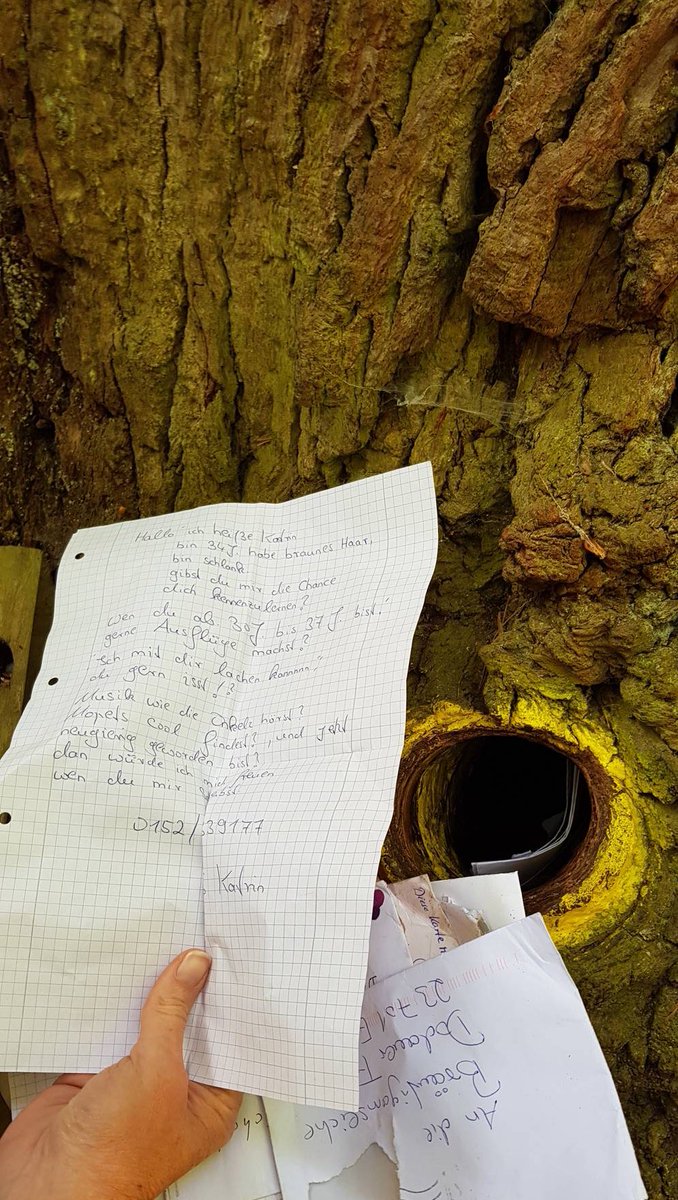 Hallo ich heiße Katrin
bin 34 J. habe braunes Haar,
bin schlank.
gibst du mir die Chance
dich kennenzulernen?
Wen du ab 30 J. bis 37 J. bist!
gerne Ausflüge machst?
ich mit dir lachen kannnn!
du gern isst!?
Musik wie die Onkelz hörst?
Mopets cool findest?, und jetzt
neugierig geworden bist?
dan würde ich mich freuen
wen du mir schreibst
0152/39177
Katrin
Diese Karte
An die
Bräutigamseiche
Dodauer F
23701 E